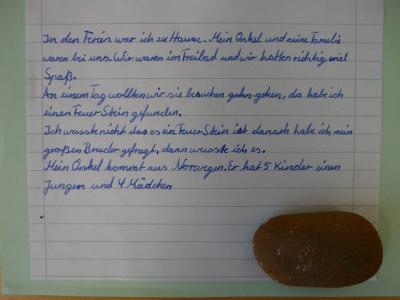 In den Ferien war ich zu Hause. Mein Onkel und seine Familie
waren bei uns. Wir waren im Freibad und wir hatten richtig viel
Spaß.
An einem Tag wollten wir sie besuchen gehn gehen, da hab ich
einen Feuer Stein gefunden.
Ich wusste nicht das es ein Feuer Stein ist danach habe ich mein
großen Bruder gefragt, dann wusste ich es.
Mein Onkel kommt aus Norwegen. Er hat 5 Kinder einen
Jungen und 4 Mädchen